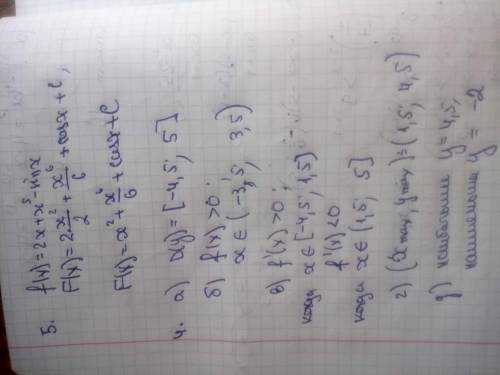 5. f(x) = 2x + x⁵ - sin x
F(x) = 2x²/2 + x⁶/6 + cosx + C,
F(x) = x² + x⁶/6 + cosx + C
4. а) D(y) = [-4,5; 5]
б) f(x) >0;
x ∈ (-3,5; 3,5)
в) f'(x) >0;
когда x ∈ [-4,5; 1,5)
f'(x) <0
когда x ∈ (1,5; 5]
г) (x max; y max) = (1,5; 4,5)
д) наибольшее y = 4,5,
наименьшее y = -2